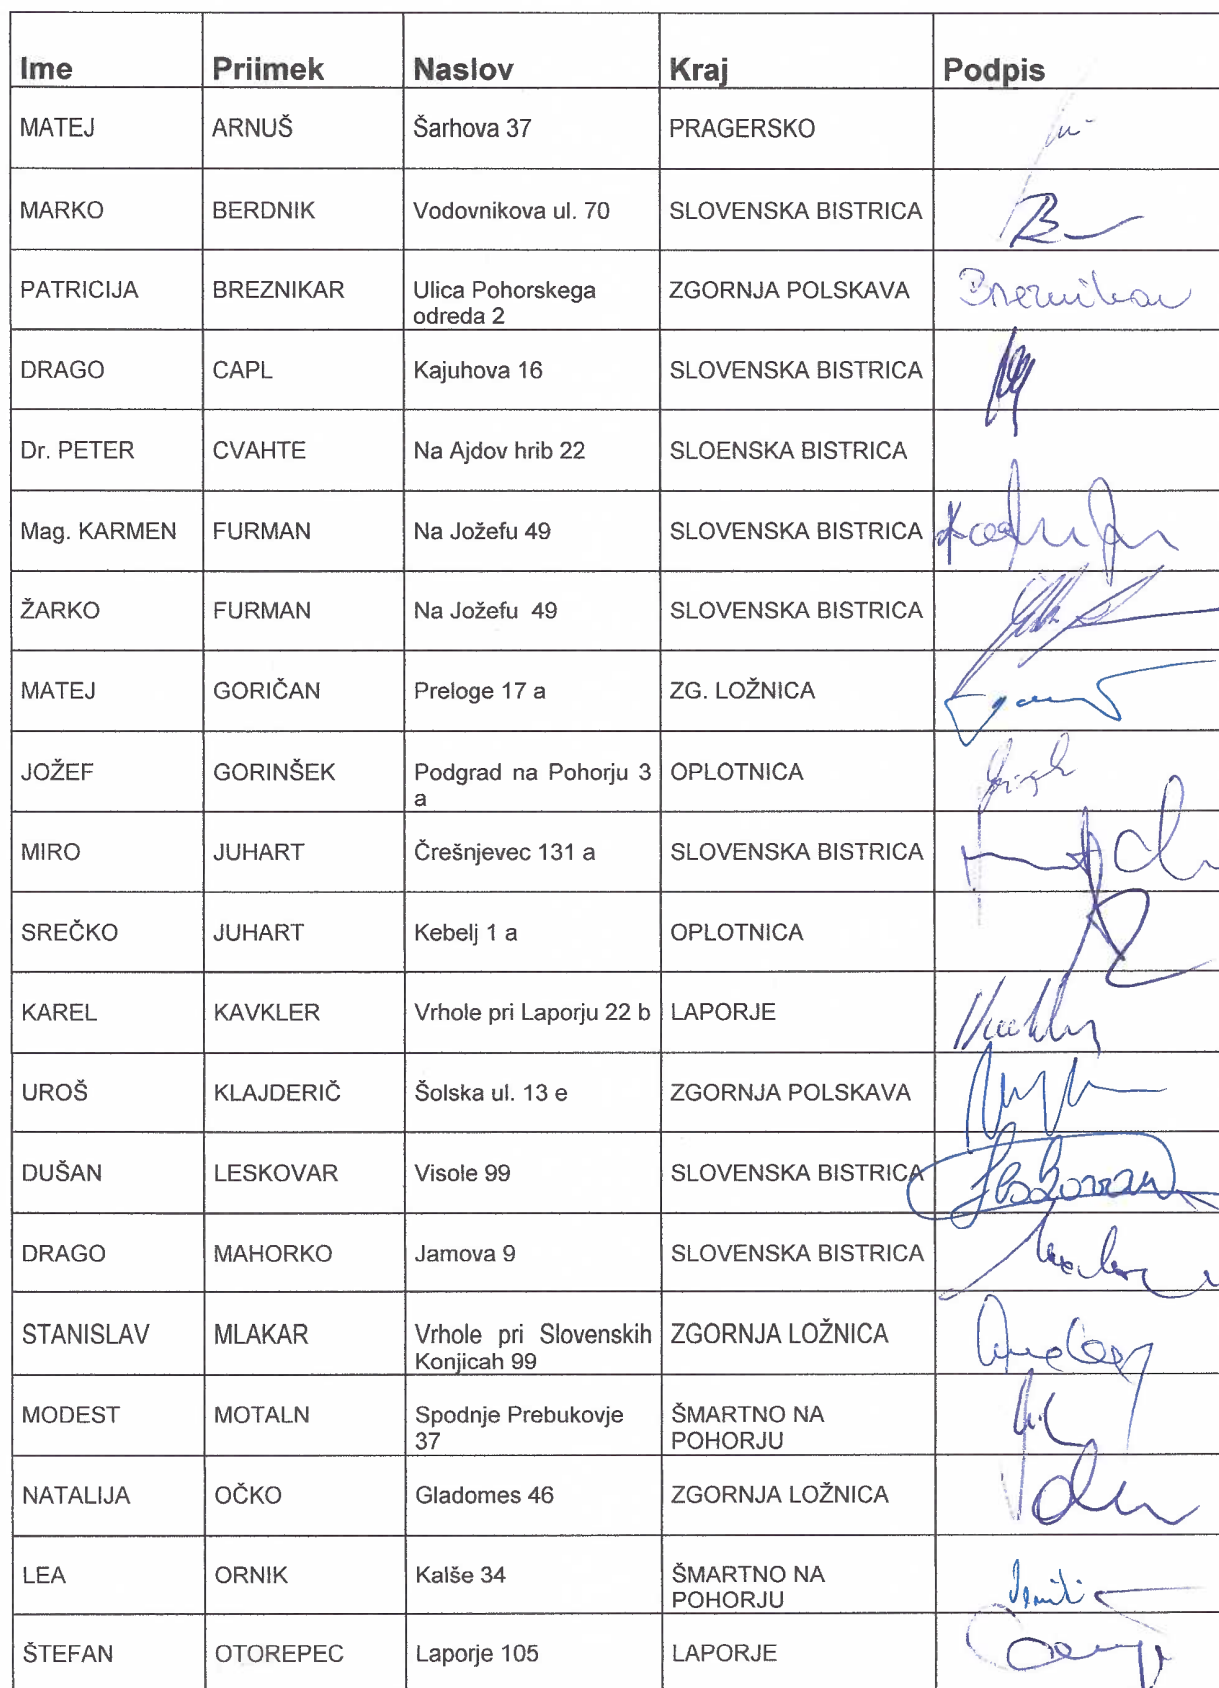 Ime Priimek Naslov Kraj Podpis
MATEJ ARNUŠ Šarhova 37 PRAGERSKO
MARKO BERDNIK Vodovnikova ul. 70 SLOVENSKA BISTRICA
PATRICIJA BREZNIKAR Ulica Pohorskega ZGORNJA POLSKAVA Breznikar
odreda 2
DRAGO CAPL Kajuhova 16 SLOVENSKA BISTRICA
Dr. PETER CVAHTE Na Ajdov hrib 22 SLOENSKA BISTRICA
Mag. KARMEN FURMAN Na Jožefu 49 SLOVENSKA BISTRICA
ŽARKO FURMAN Na Jožefu 49 SLOVENSKA BISTRICA
MATEJ GORIČAN Preloge 17 a ZG. LOŽNICA
JOŽEF GORINŠEK Podgrad na Pohorju 3 OPLOTNICA
a
MIRO JUHART Črešnjevec 131 a SLOVENSKA BISTRICA
SREČKO JUHART Kebelj 1 a OPLOTNICA
KAREL KAVKLER Vrhole pri Laporju 22 b LAPORJE
UROŠ KLAJDERIČ Šolska ul. 13 e ZGORNJA POLSKAVA
DUŠAN LESKOVAR Visole 99 SLOVENSKA BISTRICA
DRAGO MAHORKO Jamova 9 SLOVENSKA BISTRICA
STANISLAV MLAKAR Vrhole pri Slovenskih ZGORNJA LOŽNICA
Konjicah 99
MODEST MOTALN Spodnje Prebukovje ŠMARTNO NA
37 POHORJU
NATALIJA OČKO Gladomes 46 ZGORNJA LOŽNICA
LEA ORNIK Kalše 34 ŠMARTNO NA
POHORJU
ŠTEFAN OTOREPEC Laporje 105 LAPORJE